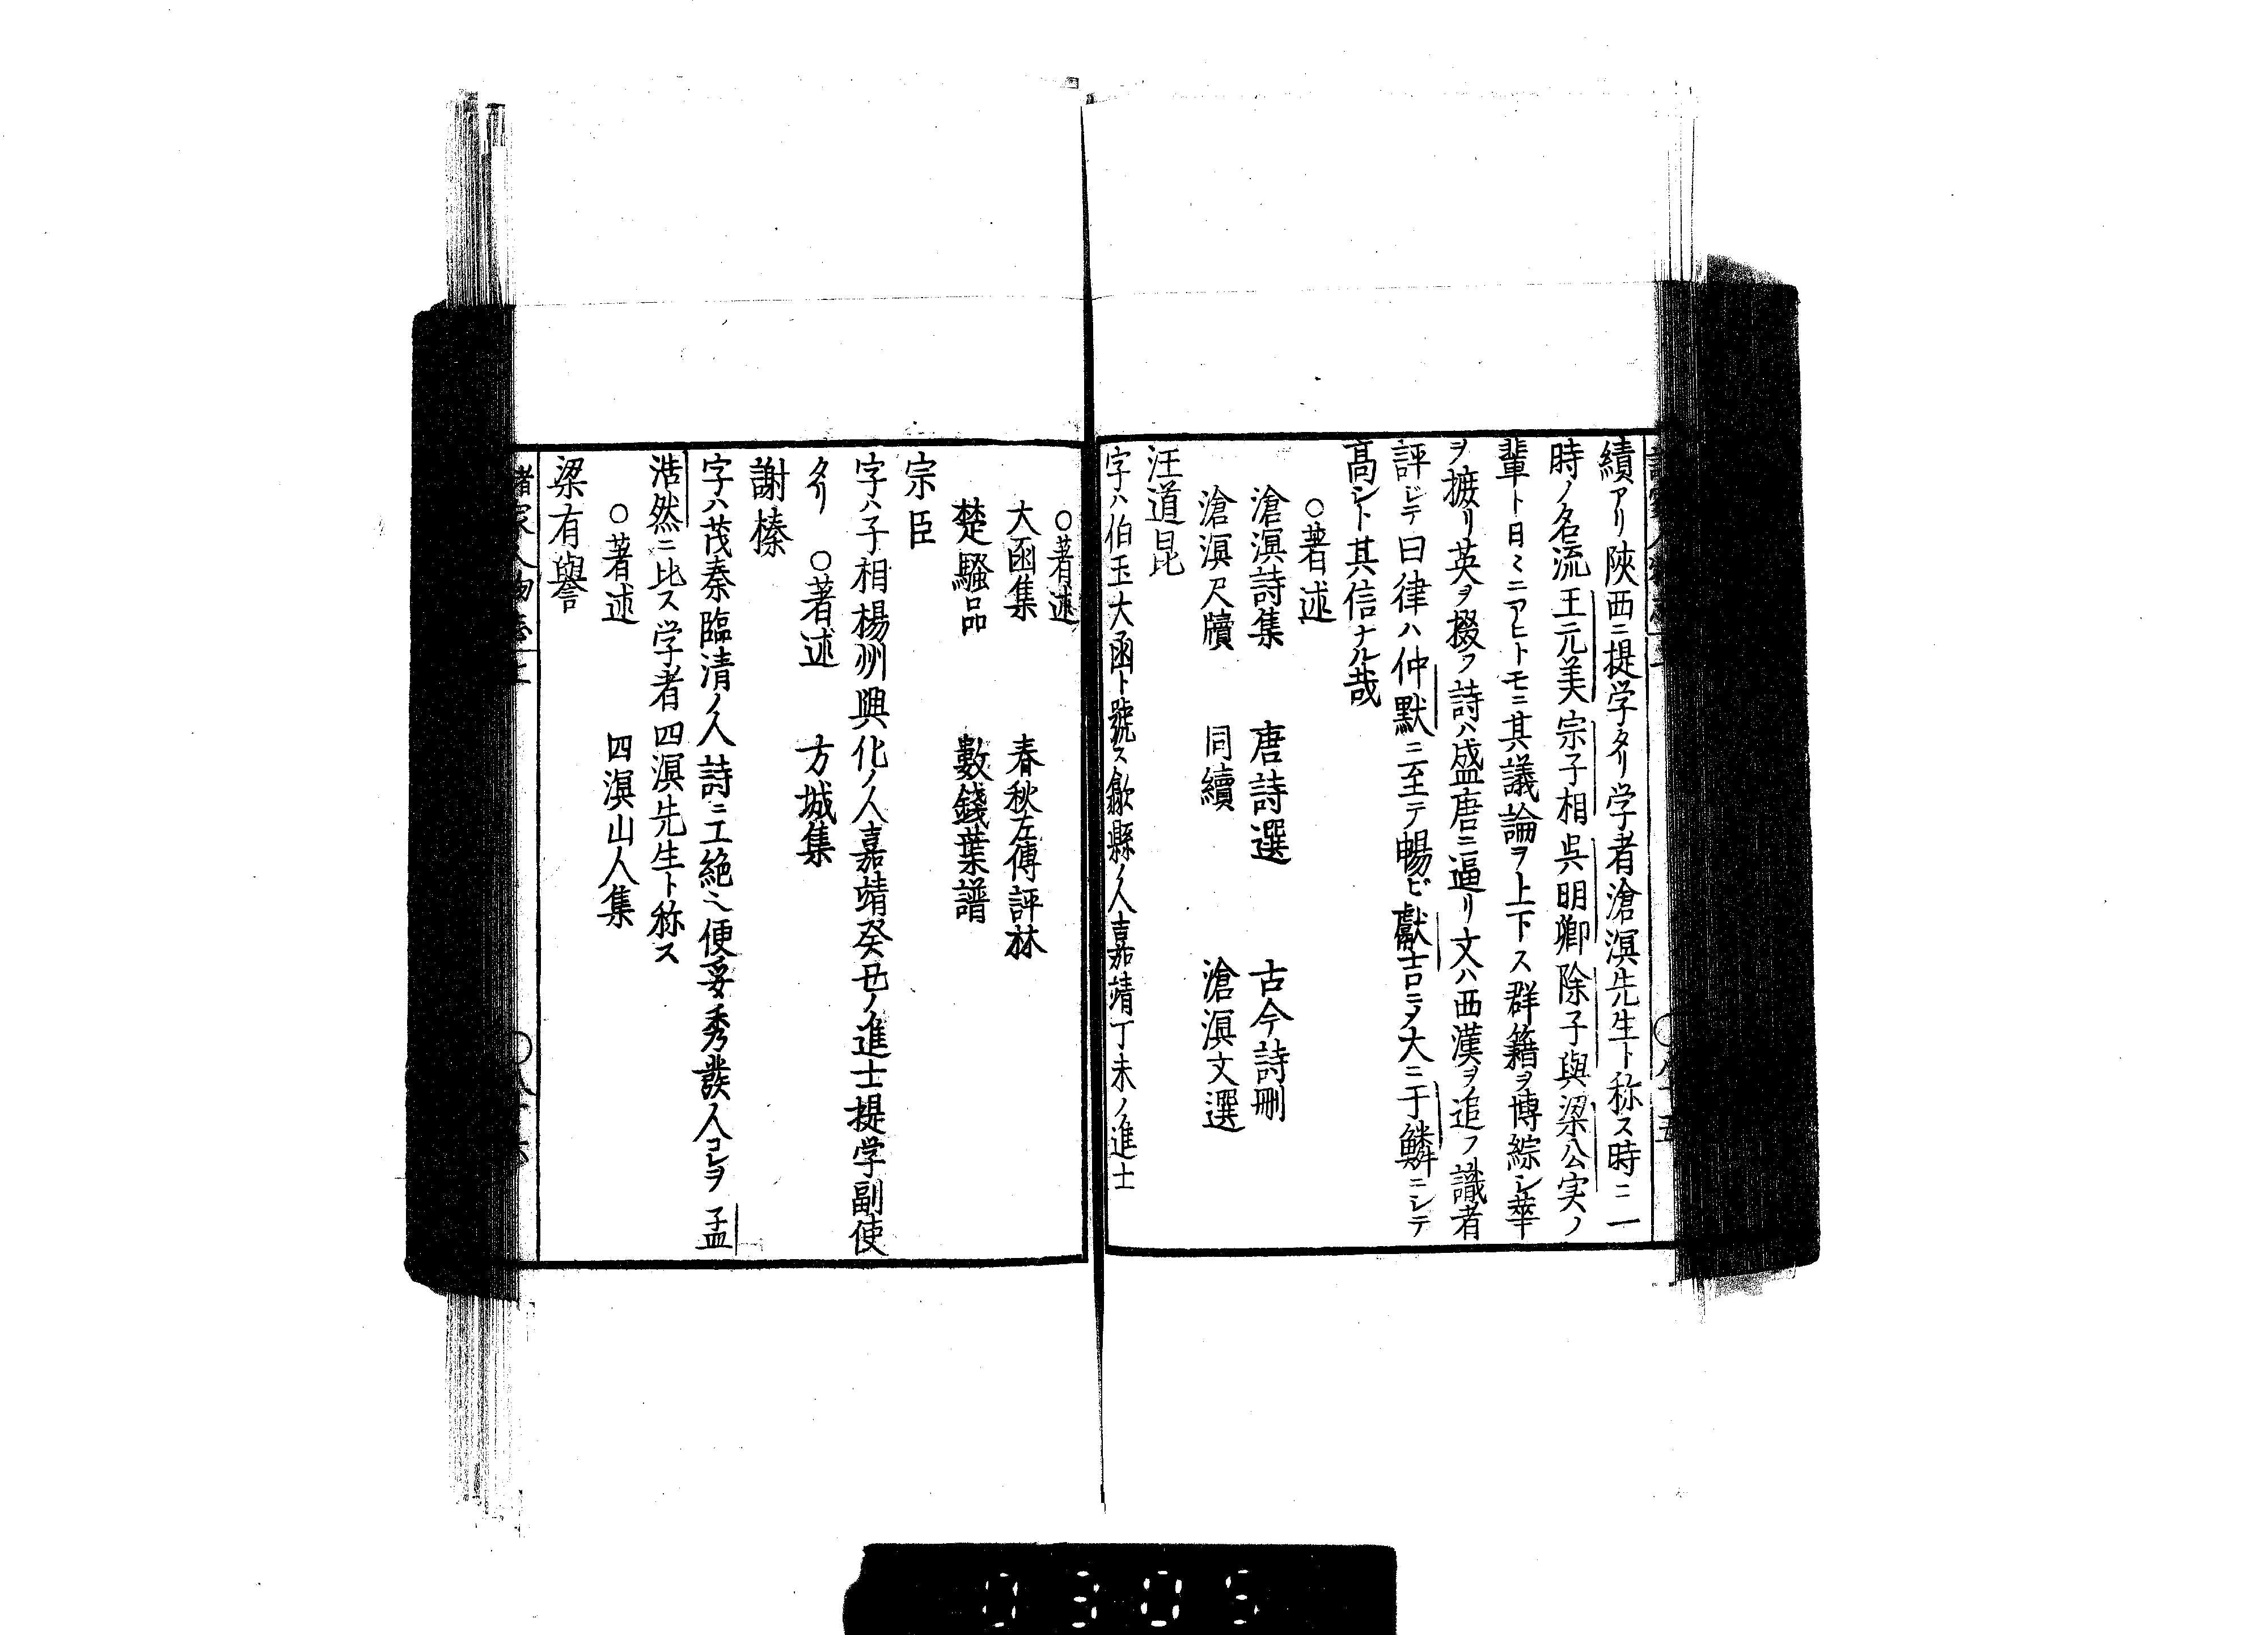 績アリ陝西ニ提学タリ学者滄溟先生ト称ス時ニ一
時ノ名流王元美宗子相呉明卿除子與梁公実ノ
輩ト日〻ニアヒトモニ其議論ヲ上下ス群籍ヲ博綜シ華
ヲ摭リ英ヲ掇フ詩ハ盛唐ニ逼リ文ハ西漢ヲ追フ識者
評シテ曰律ハ仲黙ニ至テ暢ビ獻吉ニヲ大ニ于鱗ニシテ
高シト其信ナル哉
○著述
滄溟詩集 唐詩選 古今詩刪
滄溟尺牘 同續 滄溟文選
汪道昆
字ハ伯玉大函ト號ス歙縣ノ人嘉靖丁未ノ進士
○著述
大函集 春秋左傳評林
楚騷品 數錢葉譜
宗臣
字ハ子相楊州興化ノ人嘉靖癸丑ノ進士提学副使
タリ ○著述 方城集
謝榛
字ハ茂秦臨清ノ人詩ニ工絶之便妥秀發人コレヲ孟
浩然ニ比ス学者四溟先生ト称ス
○著述 四溟山人集
梁有譽
諸家人物志
0305